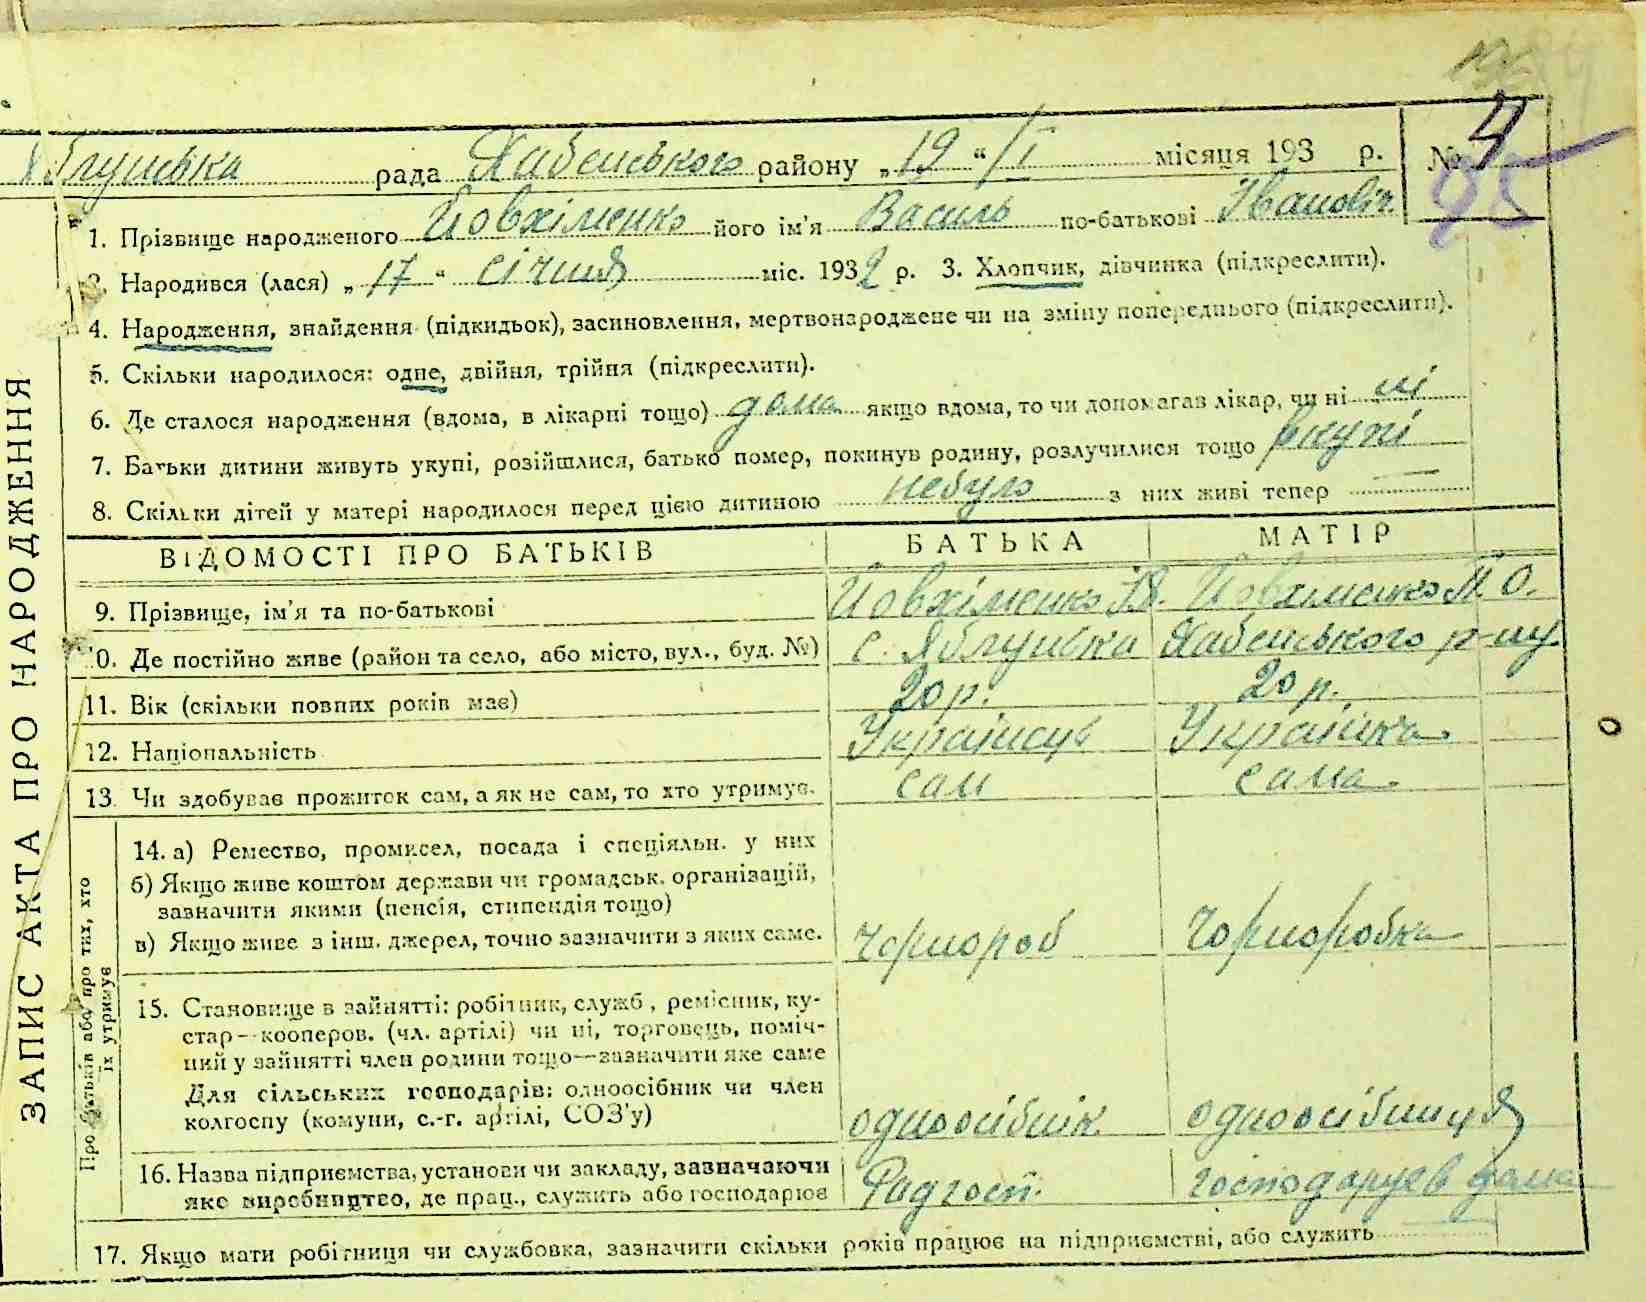 Яблунська рада Хабенського району „19“ /I місяця 193 р. № 4
95
1. Прізвище народженого Йовхіменко його ім'я Василь по-батькові Іванович
2. Народився (лася) „17“ січня міс. 1932 р. 3. Хлопчик, дівчинка (підкреслити).
4. Народження, знайдення (підкидьок), засиновлення, мертвонароджене чи на зміну попереднього (підкреслити).
5. Скільки народилося: одне, двійня, трійня (підкреслити).
6. Де сталося народження (вдома, в лікарні тощо) дома якщо вдома, то чи допомагав лікар, чи ні ні
7. Батьки дитини живуть укупі, розійшлися, батько помер, покинув родину, розлучилися тощо вкупі
8. Скільки дітей у матері народилося перед цією дитиною небуло з них живі тепер —
ЗАПИС АКТА ПРО НАРОДЖЕННЯ
ВІДОМОСТІ ПРО БАТЬКІВ БАТЬКА МАТІР
9. Прізвище, ім'я та по-батькові Йовхіменко І.В. Йовхіменко М.О.
10. Де постійно живе (район та село, або місто, вул., буд. №) с. Яблунька Хабенського р-ну
11. Вік (скільки повних років має) 20 р. 20 р.
12. Національність Українец Українка
13. Чи здобуває прожиток сам, а як не сам, то хто утримує. сам сама
Про батьків або про тих, хто
їх утримує
14. а) Ремество, промисел, посада і спеціяльн. у них
б) Якщо живе коштом держави чи громадськ. організацій,
зазначити якими (пенсія, стипендія тощо)
в) Якщо живе з інш. джерел, точно зазначити з яких саме. чорнороб чорноробка
15. Становище в зайнятті: робітник, служб., ремісник, ку-
стар—кооперов. (чл. артілі) чи ні, торговець, поміч-
ний у зайнятті член родини тощо—зазначити яке саме
Для сільських господарів: одноосібник чи член
колгоспу (комуни, с.-г. артілі, СОЗ'у) одноосібнік одноосібниця
16. Назва підприємства, установи чи закладу, зазначаючи
яке виробництво, де прац., служить або господарює Радгосп. господарує в дома
17. Якщо мати робітниця чи службовка, зазначити скільки років працює на підприємстві, або служить —